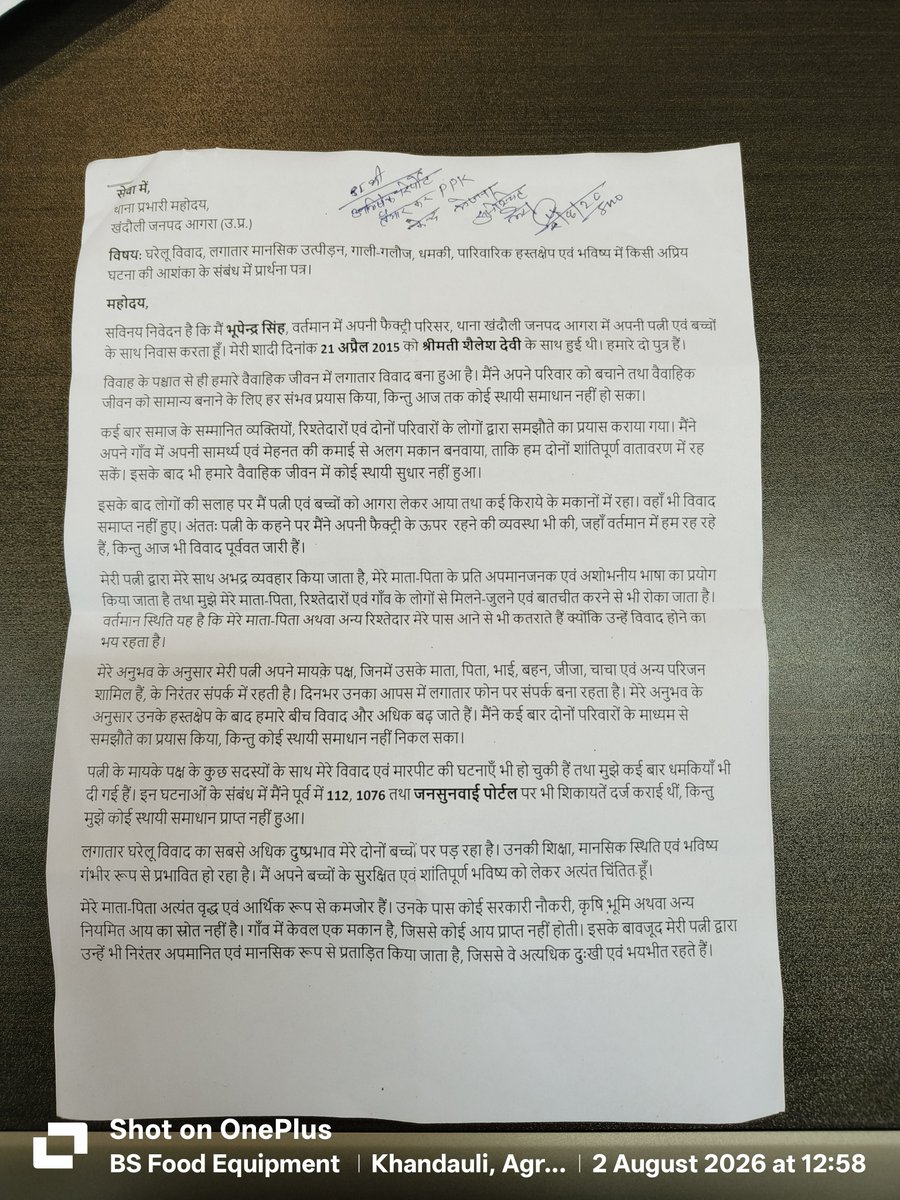 सेवा में,
थाना प्रभारी महोदय,
खंदौली जनपद आगरा (उ.प्र.)
PPK
विषय: घरेलू विवाद, लगातार मानसिक उत्पीड़न, गाली-गलौज, धमकी, पारिवारिक हस्तक्षेप एवं भविष्य में किसी अप्रिय
घटना की आशंका के संबंध में प्रार्थना पत्र।
महोदय,
सविनय निवेदन है कि मैं भूपेन्द्र सिंह, वर्तमान में अपनी फैक्ट्री परिसर, थाना खंदौली जनपद आगरा में अपनी पत्नी एवं बच्चों
के साथ निवास करता हूँ। मेरी शादी दिनांक 21 अप्रैल 2015 को श्रीमती शैलेश देवी के साथ हुई थी। हमारे दो पुत्र हैं।
विवाह के पश्चात से ही हमारे वैवाहिक जीवन में लगातार विवाद बना हुआ है। मैंने अपने परिवार को बचाने तथा वैवाहिक
जीवन को सामान्य बनाने के लिए हर संभव प्रयास किया, किन्तु आज तक कोई स्थायी समाधान नहीं हो सका।
कई बार समाज के सम्मानित व्यक्तियों, रिश्तेदारों एवं दोनों परिवारों के लोगों द्वारा समझौते का प्रयास कराया गया। मैंने
अपने गाँव में अपनी सामर्थ्य एवं मेहनत की कमाई से अलग मकान बनवाया, ताकि हम दोनों शांतिपूर्ण वातावरण में रह
सकें। इसके बाद भी हमारे वैवाहिक जीवन में कोई स्थायी सुधार नहीं हुआ।
इसके बाद लोगों की सलाह पर मैं पत्नी एवं बच्चों को आगरा लेकर आया तथा कई किराये के मकानों में रहा। वहाँ भी विवाद
समाप्त नहीं हुए। अंततः पत्नी के कहने पर मैंने अपनी फैक्ट्री के ऊपर रहने की व्यवस्था भी की, जहाँ वर्तमान में हम रह रहे
हैं, किन्तु आज भी विवाद पूर्ववत जारी हैं।
मेरी पत्नी द्वारा मेरे साथ अभद्र व्यवहार किया जाता है, मेरे माता-पिता के प्रति अपमानजनक एवं अशोभनीय भाषा का प्रयोग
किया जाता है तथा मुझे मेरे माता-पिता, रिश्तेदारों एवं गाँव के लोगों से मिलने-जुलने एवं बातचीत करने से भी रोका जाता है।
वर्तमान स्थिति यह है कि मेरे माता-पिता अथवा अन्य रिश्तेदार मेरे पास आने से भी कतराते हैं क्योंकि उन्हें विवाद होने का
भय रहता है।
मेरे अनुभव के अनुसार मेरी पत्नी अपने मायके पक्ष, जिनमें उसके माता, पिता, भाई, बहन, जीजा, चाचा एवं अन्य परिजन
शामिल हैं, के निरंतर संपर्क में रहती है। दिनभर उनका आपस में लगातार फोन पर संपर्क बना रहता है। मेरे अनुभव के
अनुसार उनके हस्तक्षेप के बाद हमारे बीच विवाद और अधिक बढ़ जाते हैं। मैंने कई बार दोनों परिवारों के माध्यम से
समझौते का प्रयास किया, किन्तु कोई स्थायी समाधान नहीं निकल सका।
पत्नी के मायके पक्ष के कुछ सदस्यों के साथ मेरे विवाद एवं मारपीट की घटनाएँ भी हो चुकी हैं तथा मुझे कई बार धमकियाँ भी
दी गई हैं। इन घटनाओं के संबंध में मैंने पूर्व में 112, 1076 तथा जनसुनवाई पोर्टल पर भी शिकायतें दर्ज कराई थीं, किन्तु
मुझे कोई स्थायी समाधान प्राप्त नहीं हुआ।
लगातार घरेलू विवाद का सबसे अधिक दुष्प्रभाव मेरे दोनों बच्चों पर पड़ रहा है। उनकी शिक्षा, मानसिक स्थिति एवं भविष्य
गंभीर रूप से प्रभावित हो रहा है। मैं अपने बच्चों के सुरक्षित एवं शांतिपूर्ण भविष्य को लेकर अत्यंत चिंतित हूँ।
मेरे माता-पिता अत्यंत वृद्ध एवं आर्थिक रूप से कमजोर हैं। उनके पास कोई सरकारी नौकरी, कृषि भूमि अथवा अन्य
नियमित आय का स्रोत नहीं है। गाँव में केवल एक मकान है, जिससे कोई आय प्राप्त नहीं होती। इसके बावजूद मेरी पत्नी द्वारा
उन्हें भी निरंतर अपमानित एवं मानसिक रूप से प्रताड़ित किया जाता है, जिससे वे अत्यधिक दुःखी एवं भयभीत रहते हैं।
Shot on OnePlus
BS Food Equipment | Khandauli, Agr... | 2 August 2026 at 12:58